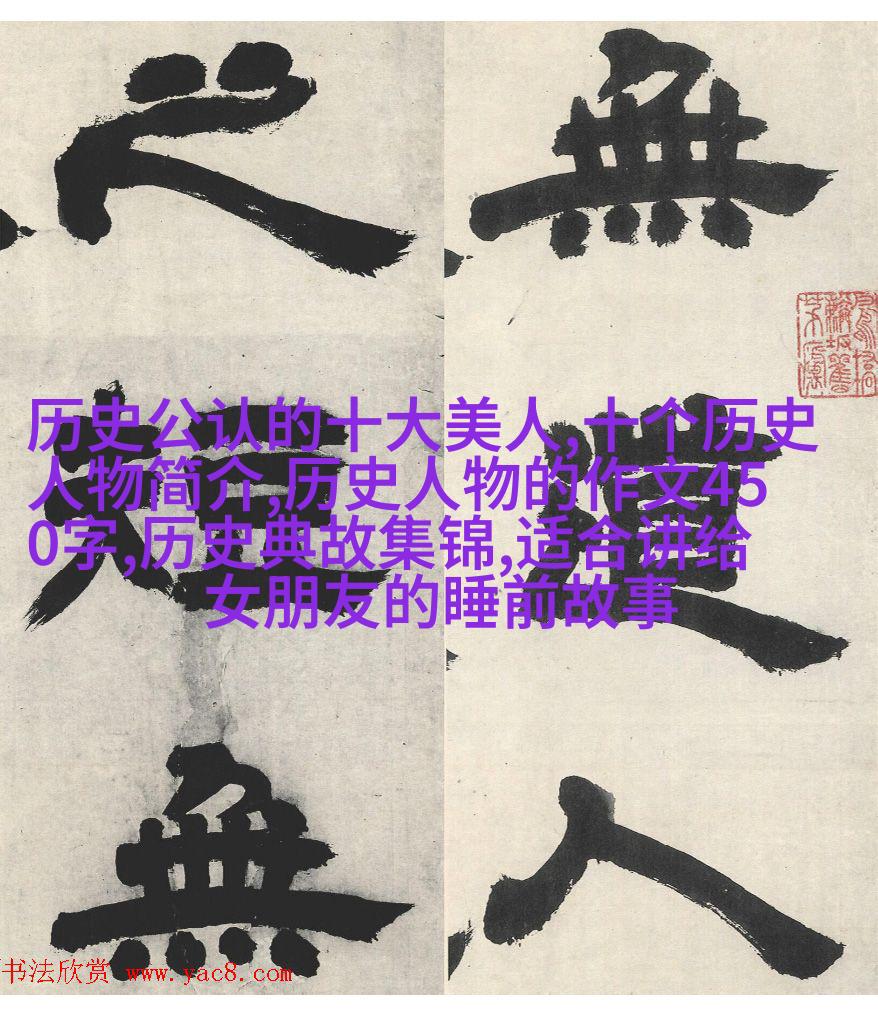 無道人
之短無
历史公认的十大美人,十个历史
人物简介,历史人物的作文45
0字,历史典故集锦,适合讲给
女朋友的睡前故事
书法欣赏 www.yac8.com